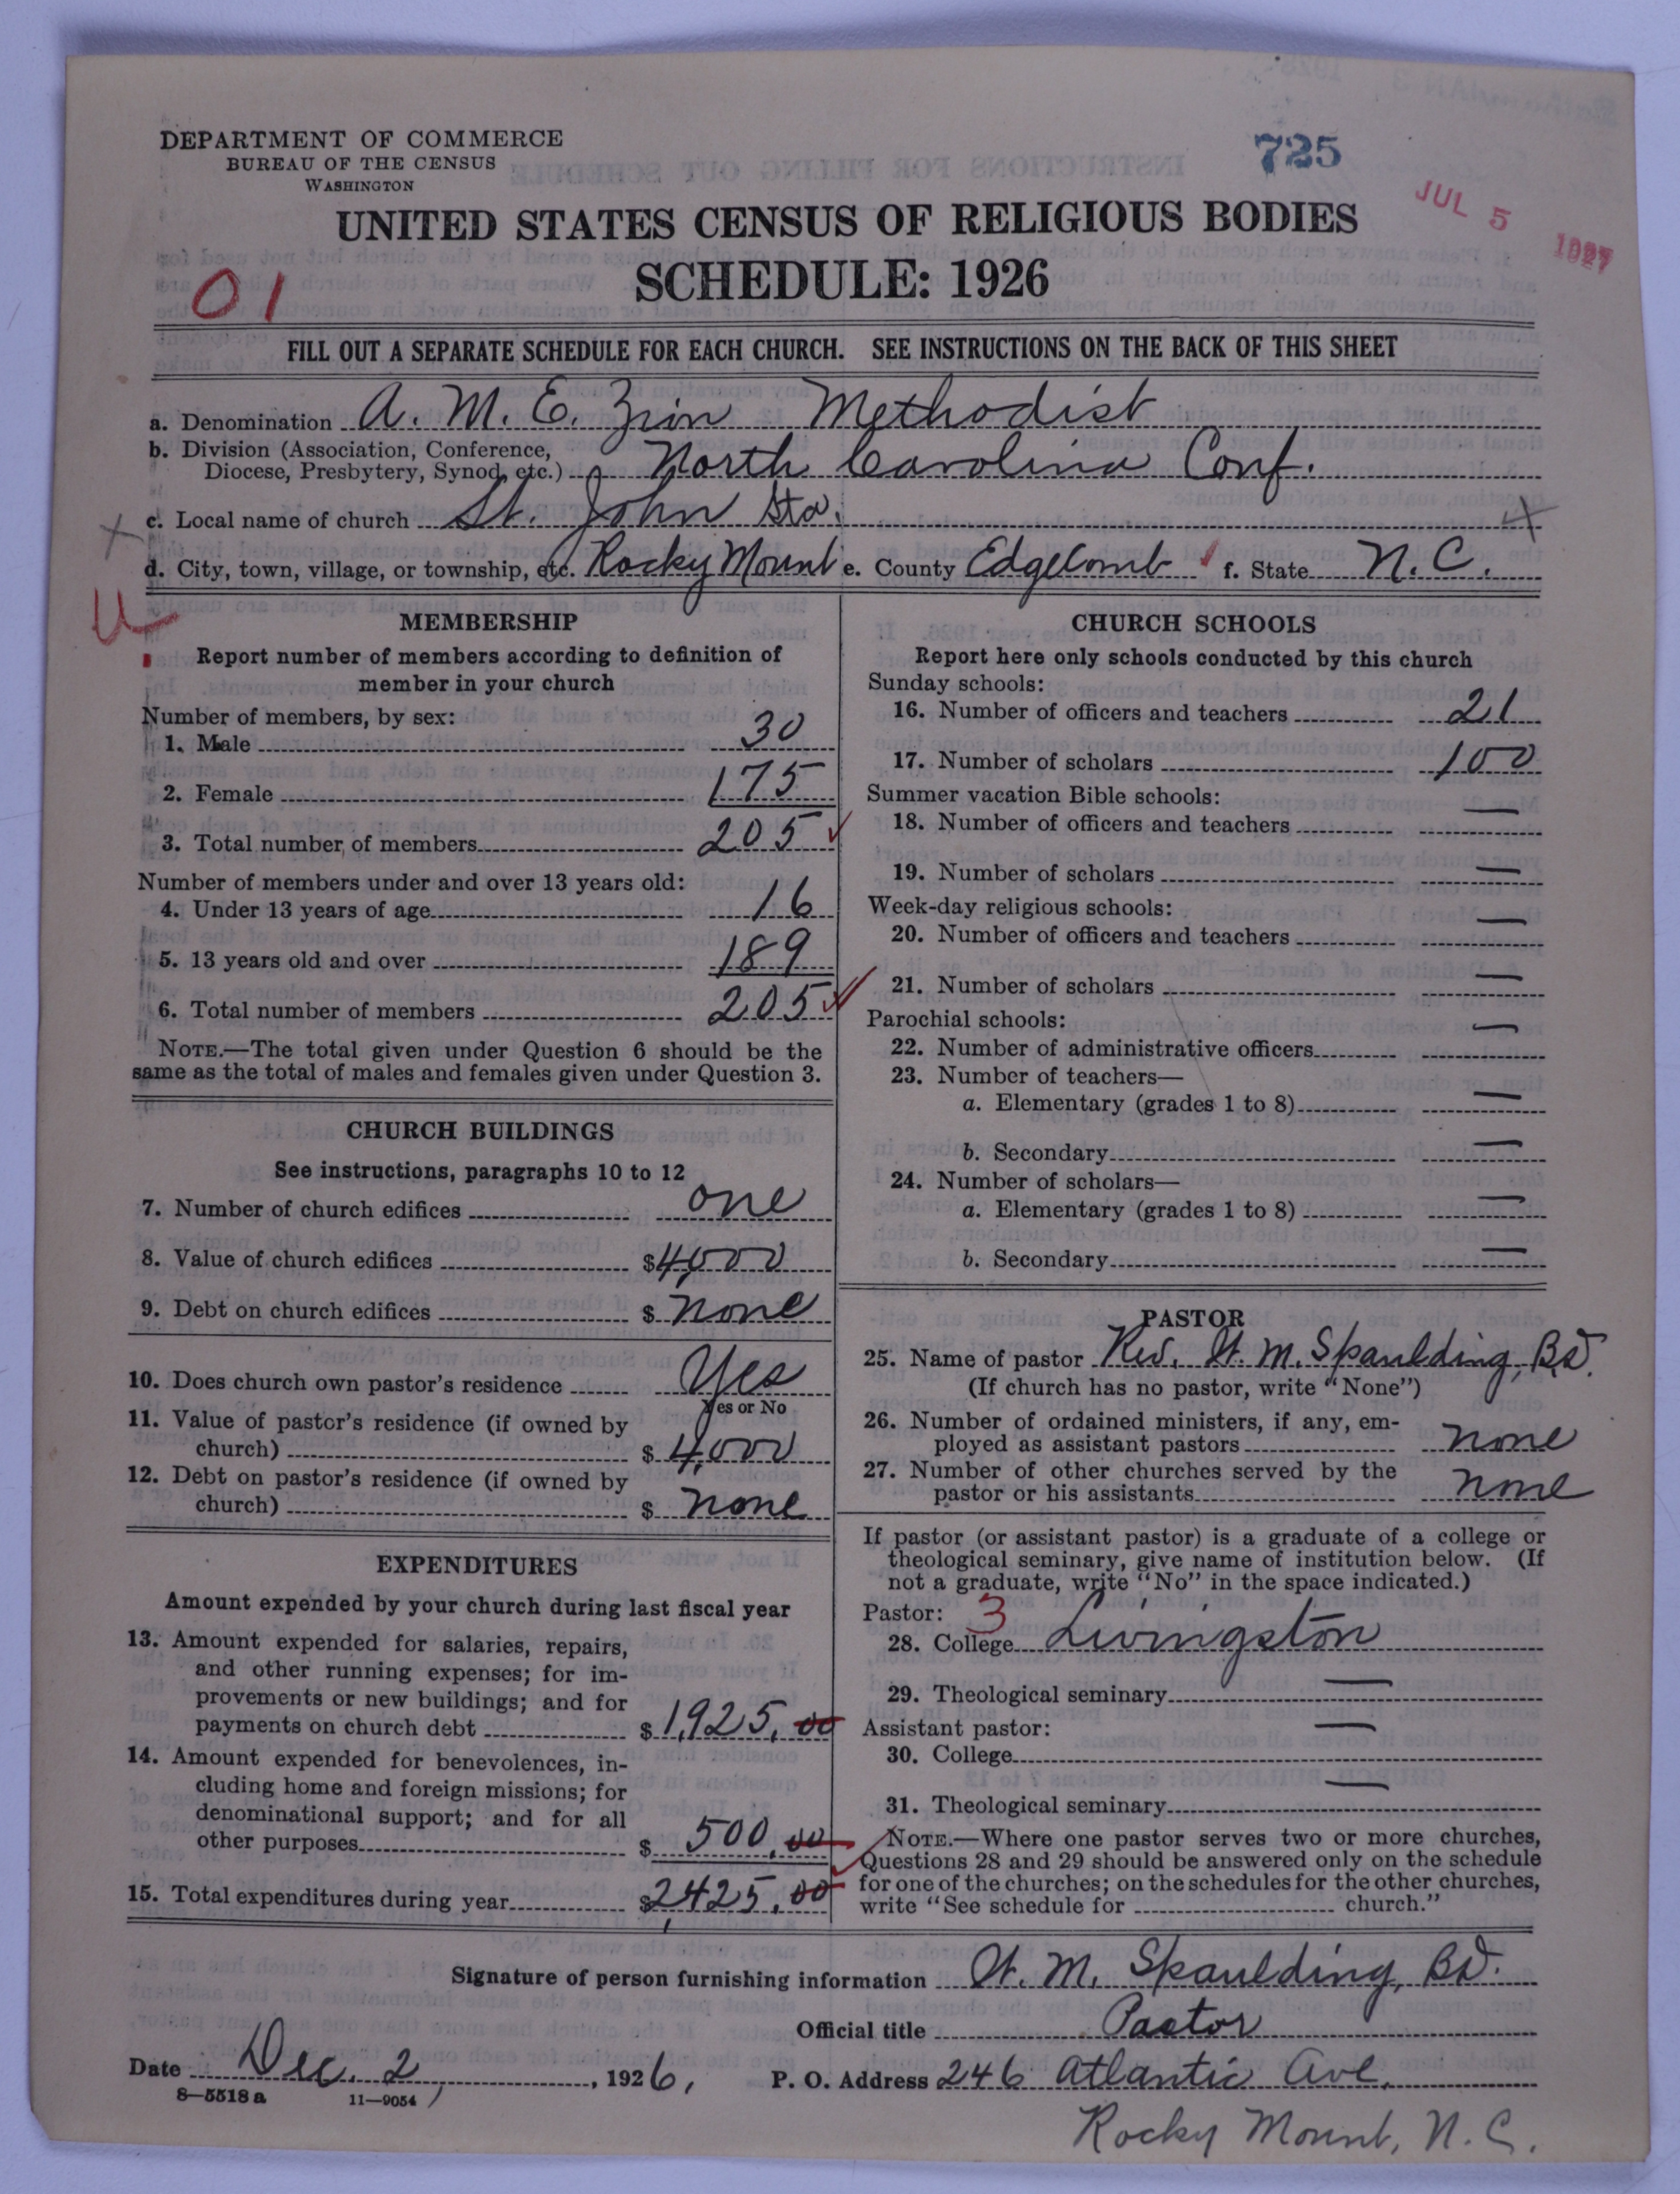 DEPARTMENT OF COMMERCE
BUREAU OF THE CENSUS
WASHINGTON
725
JUL 5 1927
UNITED STATES CENSUS OF RELIGIOUS BODIES
SCHEDULE: 1926
01
FILL OUT A SEPARATE SCHEDULE FOR EACH CHURCH. SEE INSTRUCTIONS ON THE BACK OF THIS SHEET
a. Denomination A. M. E. Zion Methodist
b. Division (Association, Conference,
Diocese, Presbytery, Synod, etc.) North Carolina Conf.
c. Local name of church St. John Sta.
d. City, town, village, or township, etc. Rocky Mount e. County Edgecomb f. State N.C.
MEMBERSHIP
Report number of members according to definition of
member in your church
Number of members, by sex:
1. Male 30
2. Female 175
3. Total number of members 205
Number of members under and over 13 years old:
4. Under 13 years of age 16
5. 13 years old and over 189
6. Total number of members 205
NOTE.—The total given under Question 6 should be the
same as the total of males and females given under Question 3.
CHURCH BUILDINGS
See instructions, paragraphs 10 to 12
7. Number of church edifices one
8. Value of church edifices $4,000
9. Debt on church edifices $ none
10. Does church own pastor's residence Yes
Yes or No
11. Value of pastor's residence (if owned by
church) $ 4,000
12. Debt on pastor's residence (if owned by
church) $ none
EXPENDITURES
Amount expended by your church during last fiscal year
13. Amount expended for salaries, repairs,
and other running expenses; for im-
provements or new buildings; and for
payments on church debt $ 1,925.00
14. Amount expended for benevolences, in-
cluding home and foreign missions; for
denominational support; and for all
other purposes $ 500.00
15. Total expenditures during year $2,425.00
CHURCH SCHOOLS
Report here only schools conducted by this church
Sunday schools:
16. Number of officers and teachers 21
17. Number of scholars 100
Summer vacation Bible schools:
18. Number of officers and teachers —
19. Number of scholars —
Week-day religious schools:
20. Number of officers and teachers —
21. Number of scholars —
Parochial schools:
22. Number of administrative officers —
23. Number of teachers—
a. Elementary (grades 1 to 8) —
b. Secondary —
24. Number of scholars—
a. Elementary (grades 1 to 8) —
b. Secondary —
PASTOR
25. Name of pastor Rev. W. M. Spaulding, B.D.
(If church has no pastor, write "None")
26. Number of ordained ministers, if any, em-
ployed as assistant pastors none
27. Number of other churches served by the
pastor or his assistants none
If pastor (or assistant pastor) is a graduate of a college or
theological seminary, give name of institution below. (If
not a graduate, write "No" in the space indicated.)
Pastor: 3
28. College Livingston
29. Theological seminary —
Assistant pastor:
30. College —
31. Theological seminary —
NOTE.—Where one pastor serves two or more churches,
Questions 28 and 29 should be answered only on the schedule
for one of the churches; on the schedules for the other churches,
write "See schedule for church."
Signature of person furnishing information W. M. Spaulding, B.D.
Official title Pastor
Date Dec. 2, 1926, P. O. Address 246 Atlantic Ave.
8—5518 a 11—9054
Rocky Mount, N. C.